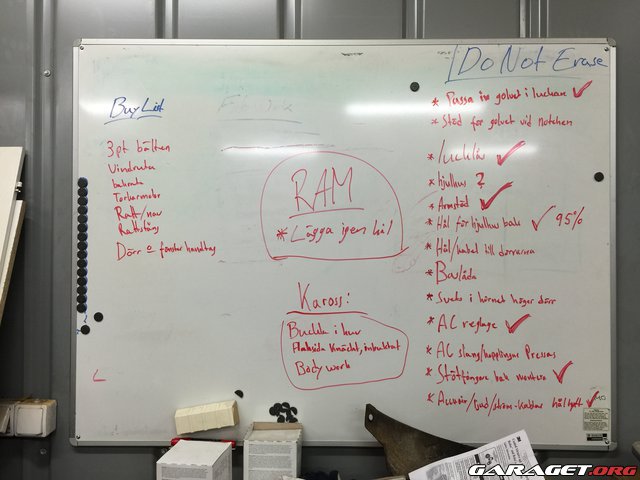 Do Not Erase
Buy List
3pt bälten
Vindruta
bakruta
Torkarmotor
Ratt/nav
Rattstång
Dörr o fönster handtag
RAM
* Lägga igen hål
Kaross:
Buckla i huv
Framsida
Body work
* Passa in golvet i luckan ✓
* Stöd för golvet vid notchen
* lucklås ✓
* hjulhus ?
* Armstöd ✓
* Hål för hjulhus bak ✓ 95%
* Hål/kabel till dörrarna
* Baklåda
* Svets i hörnet höger dörr
* AC reglage ✓
* AC slang/kopplingar Pressas
* Stötfångare bak montera ✓
* ljud/ström-kablar ✓
GARAGET.ORG